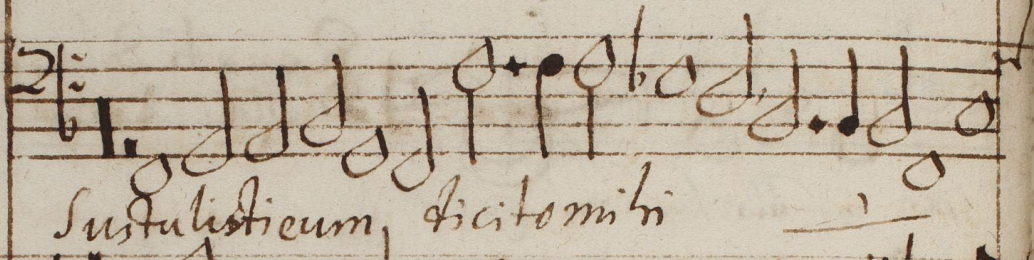 Sustulistieum, dicitomihi